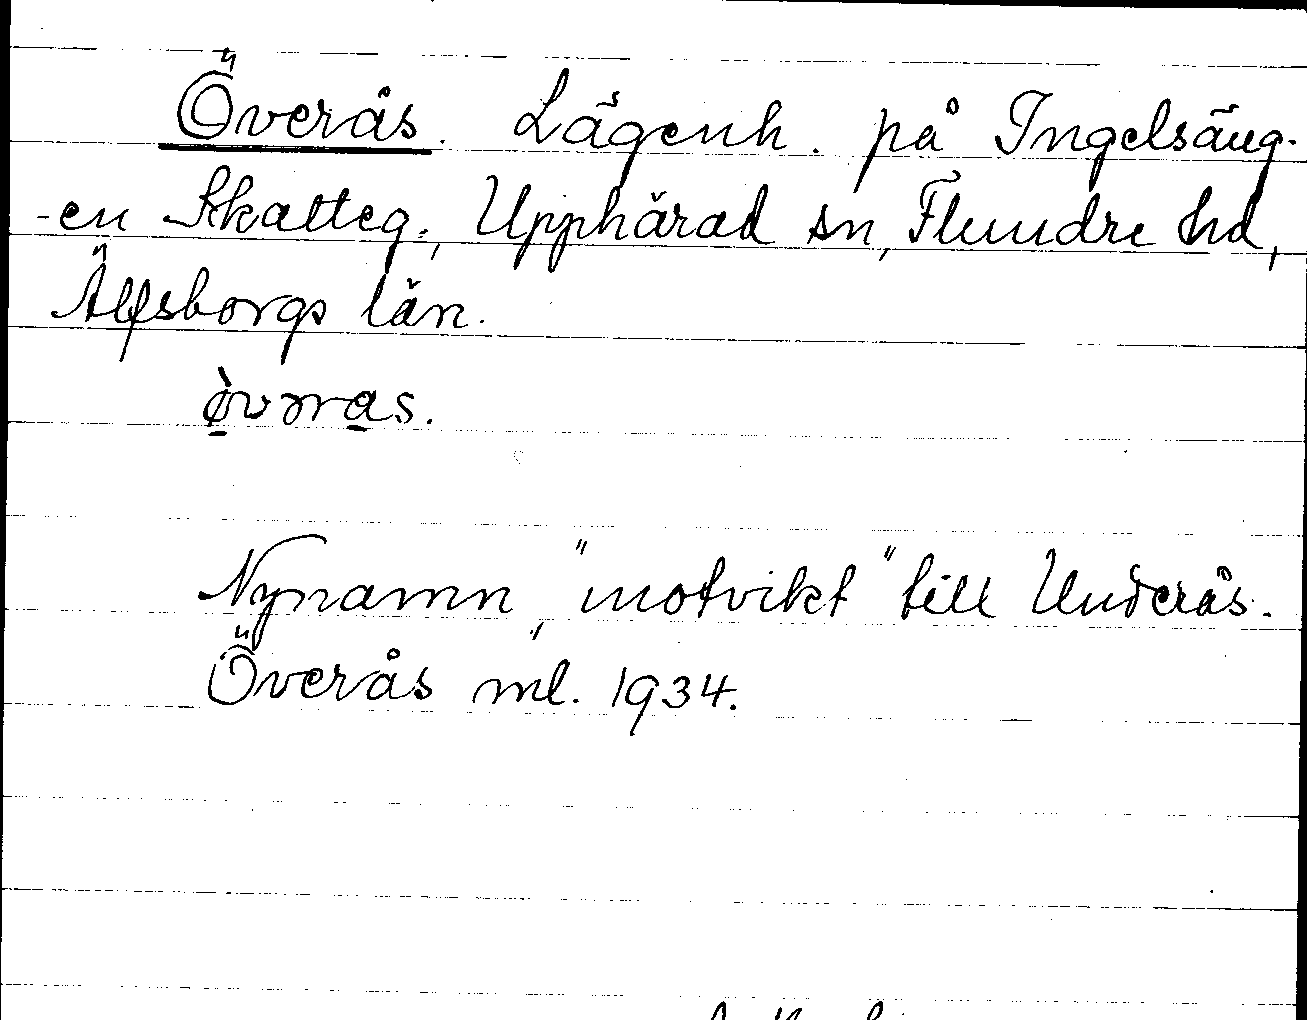 Överås. Lägenh. på Ingelsäng-
-en Skatteg., Upphärad sn, Flundre hd,
Älfsborgs län.
Nynamn, "motvikt" till Underås.
Överås ml. 1934.